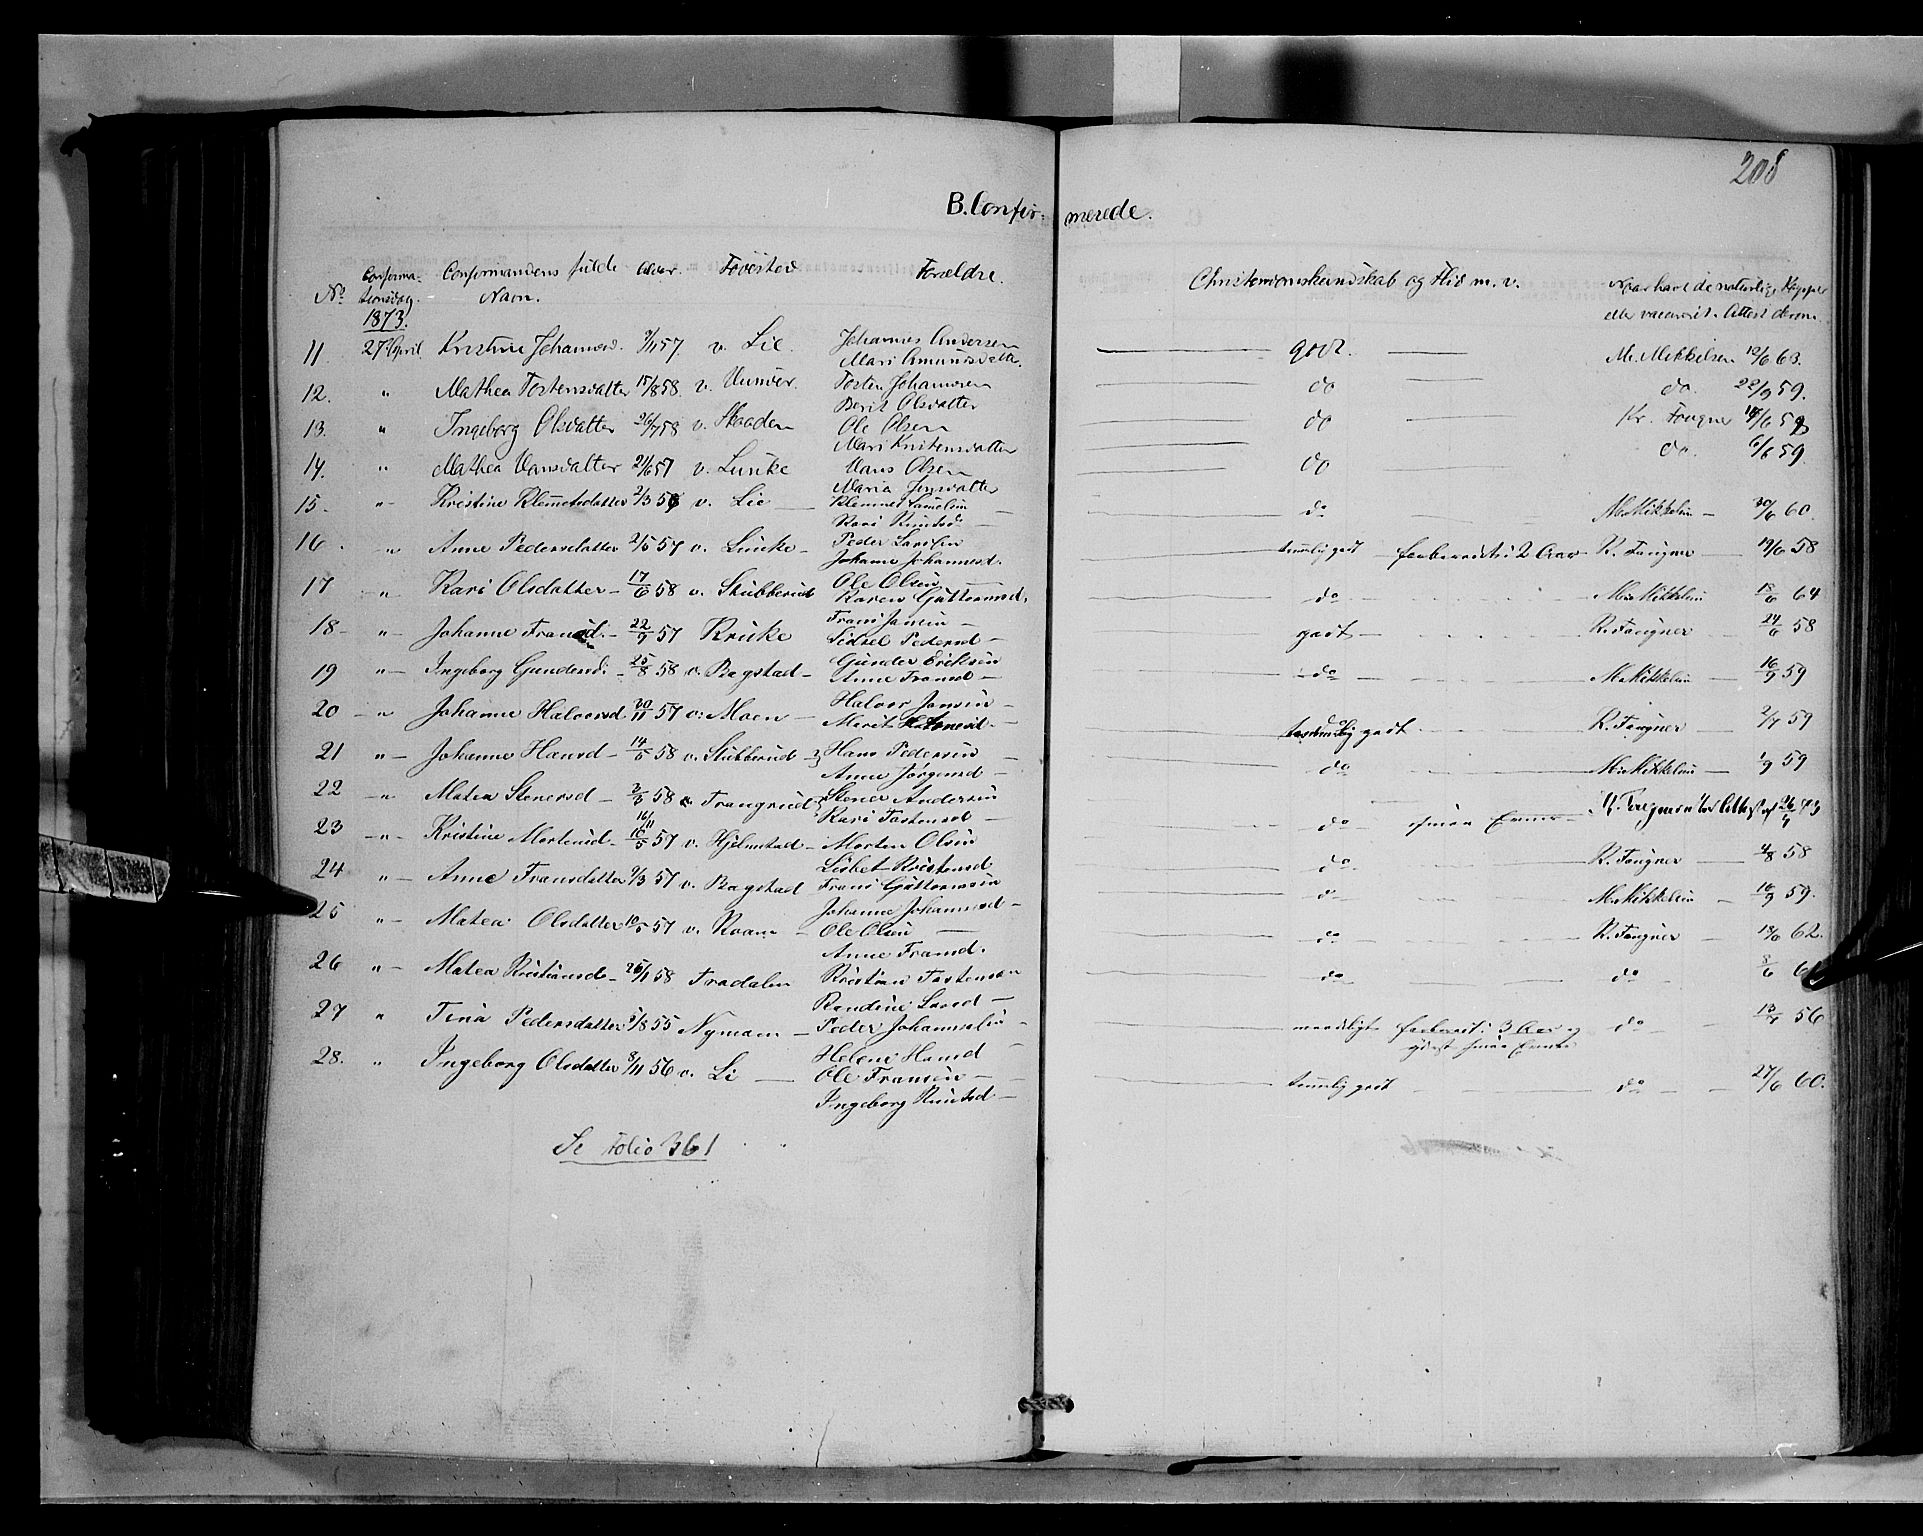 208
B. Confir- merede.
No Confirma-tionsdag. Confirmandens fulde Navn. Alder. Fødested Forældre. Christendomskundskab og Flid m. v. Naar havt de naturlige Kopper eller vaccineret. Attest derom.
1873.
11. 27de April Kristine Johannesd. 3/11 57 v. Lie. Johannes Andersen godt. M. Mikkelsen 12/6 63.
Mari Amundsdatter.
12. " Mathea Tostensdatter 15/8 58 v. Tosten Johannsen do do. 22/9 59.
Berit Olsdatter
13. " Ingeborg Olsdatter 26/7 58 v. Skaaden Ole Olsen do Kr. Fougner 59
Mari Kristensdatter
14. " Mathea Hansdatter 21/6 57 v. Lunke Hans Olsen do do. 6/6 59.
Maria Jensdatter
15. " Kristine Klemetsdatter 2/3 58 v. Lie Klemmet Samelsen do M. Mikkelsen 30/6 60.
Kari Knutsd.
16. " Anne Pedersdatter 2/5 57 v. Lunke Peder Larsen temmelig godt forberedt i 2 Aar K. Fougner 19/6 58
Johanne Johannesd.
17 " Kari Olsdatter 17/6 58 v. Stubberud Ole Olsen do M. Mikkelsen 18/6 64
Karen Guttormsd.
18 " Johanne Fransd. 22/9 57 Kruke Frans Jansen godt K. Fougner 24/6 58
Sidsel Pedersd.
19 " Ingeborg Gundersd. 25/8 58 v. Bagstad Gunder Eriksen do M. Mikkelsen 16/9 59
Anne Fransd.
20 " Johanne Halvorsd 30/11 57 v. Moen Halvor Jansen temmelig godt K. Fougner 2/7 59
Marit
21 " Johanne Hansd 14/6 58 v. Stubberud Hans Pedersen do M. Mikkelsen 1/9 59
Anne Jørgensd
22 " Matea Stenersd 3/3 58 v. Frangrud Stener Andersen do smaa Evner K. Fougner 26/4 73
Kari Tostensd
23 " Kristine Mortensd 16/11 16/5 57 v. Hjelmstad Morten Olsen do K. Fougner 4/8 58
Lisbet Kristensd
24 " Anne Fransdatter 9/3 57 v. Bagstad Frans Guttormsen do M. Mikkelsen 16/9 59.
Johanne Johannesd
25 " Matea Olsdatter 10/5 57 v. Roam Ole Olsen do K. Fougner 18/6 62.
Anne Fransd.
26 " Matea Kristiansd 25/1 58 Fradalen Kristian Tostensen do do 8/6
Randine Larsd
27 " Tina Pedersdatter 5/8 55 Nymoen Peder Johannesen maadeligt forberedt i 3 Aar og yderst smaa Evner do 13/7 56
Helene Hansd
28. " Ingeborg Olsdatter 8/11 56 v. Li Ole Fransen temmelig godt do 27/6 60.
Ingeborg Knutsd
Se Folio 361